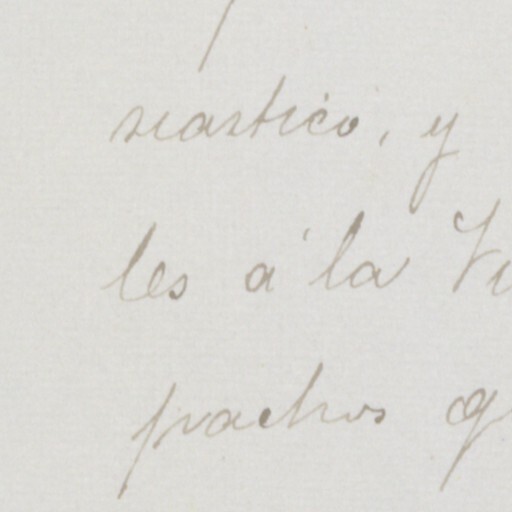 siastico, y
les á la
pachos